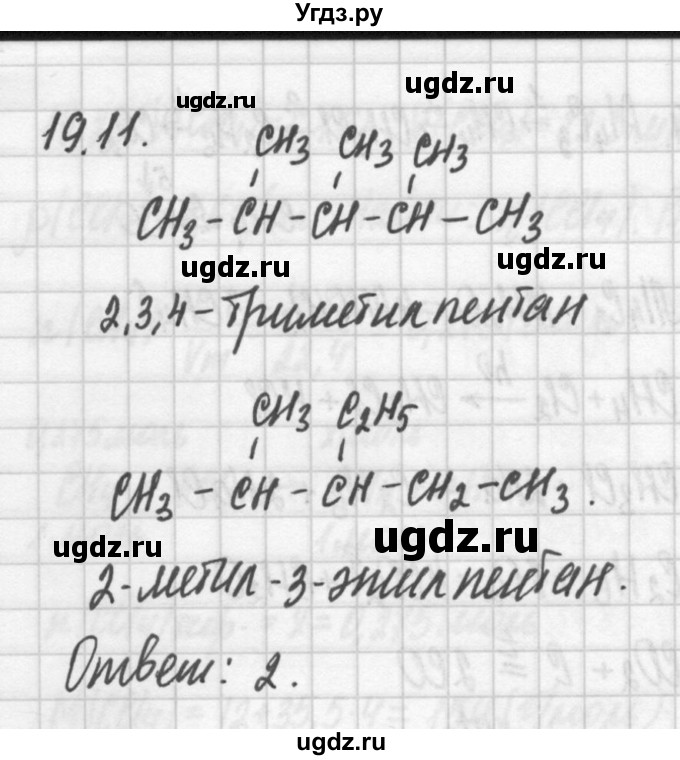 Угдз.ру
ugdz.ru
ugdz.ru
19.11.
CH3 CH3 CH3
CH3 - CH - CH - CH - CH3
ugdz.ru
ugdz.ru
2,3,4 - триметилпентан
CH3 C2H5
CH3 - CH - CH - CH2 - CH3.
ugdz.ru
ugdz.ru
2-метил-3-этилпентан.
Ответ: 2.
ugdz.ru
ugdz.ru